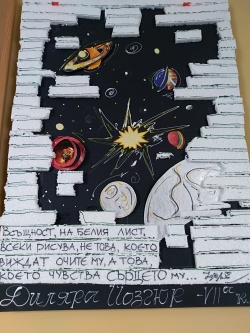 Всъщност, на белия лист,
всеки рисува, не това, което
виждат очите му, а това,
което чувства сърцето му...
Дилара Йозгюр - VIII